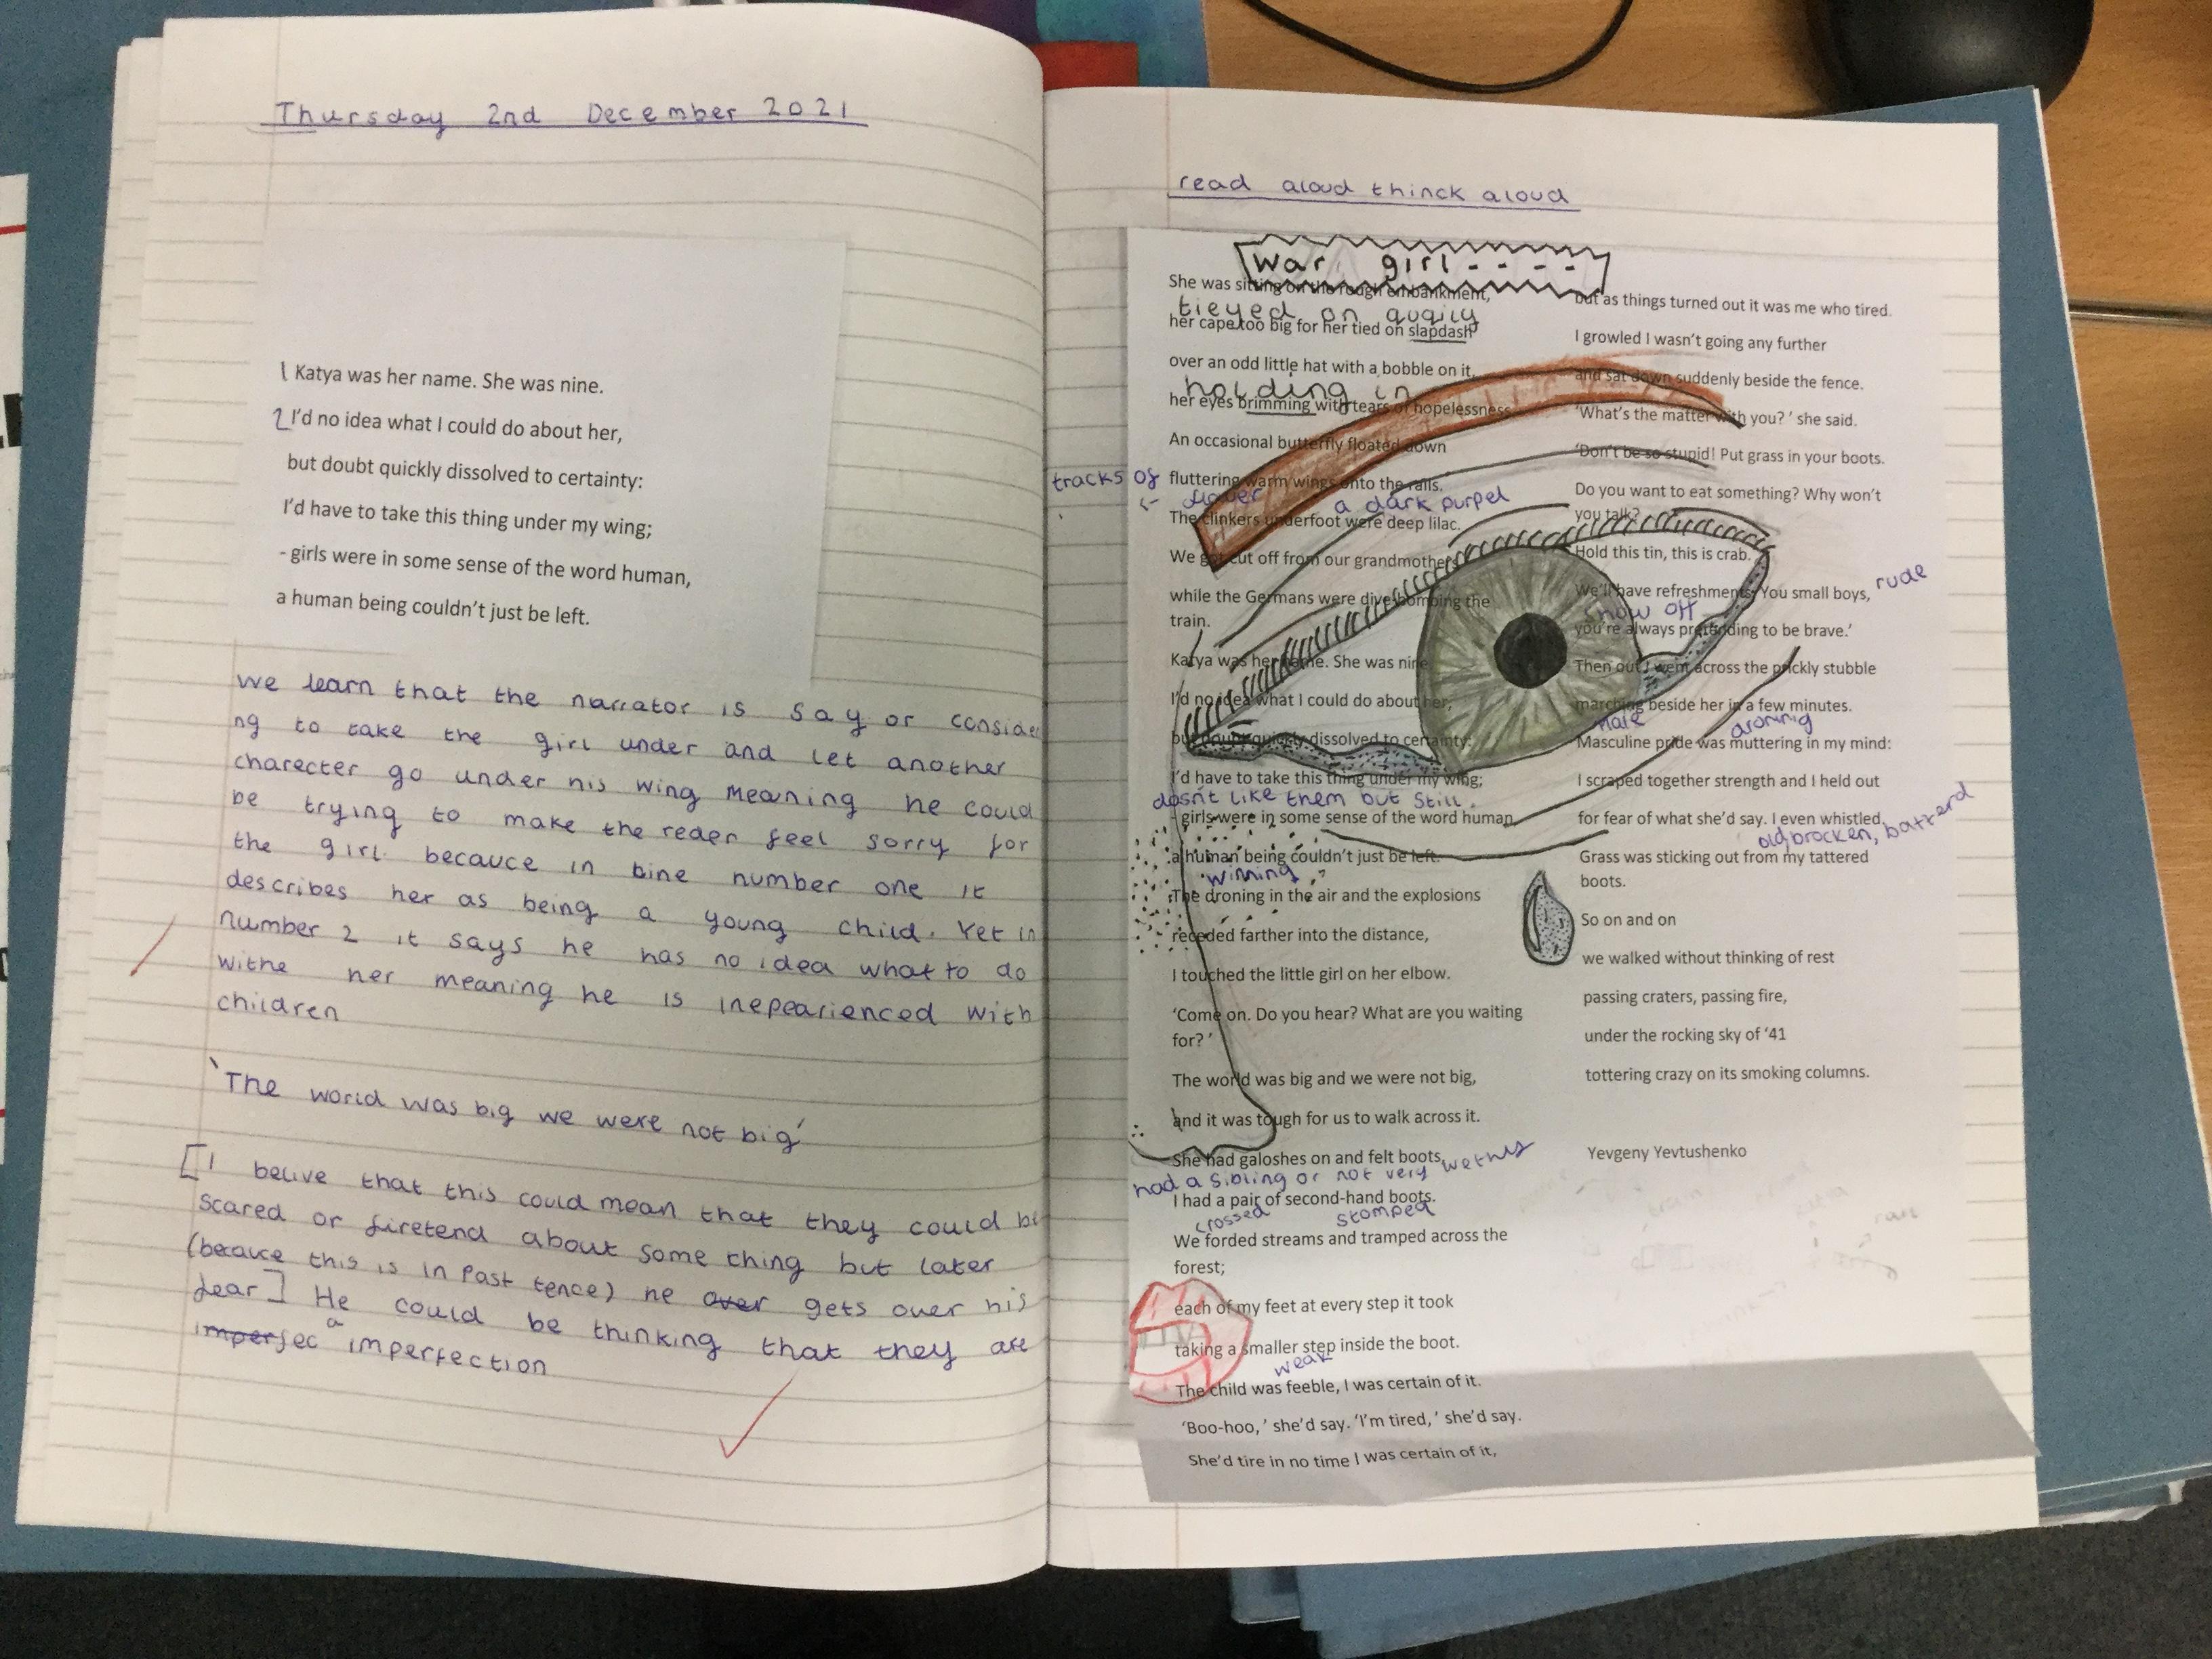 Thursday 2nd December 2021
1 Katya was her name. She was nine.
2 I'd no idea what I could do about her,
but doubt quickly dissolved to certainty:
I'd have to take this thing under my wing;
- girls were in some sense of the word human,
a human being couldn't just be left.
we learn that the narrator is say or consider
ng to take the girl under and let another
charecter go under his wing meaning he could
be trying to make the reder feel sorry for
the girl. becauce in bine number one it
describes her as being a young child. Yet in
number 2 it says he has no idea what to do
withe her meaning he is inepearienced with
children
'The world was big we were not big'
[I belive that this could mean that they could be
scared or firetend about some thing but later
(becauce this is in Past tence) he over gets over his
fear] He could be thinking that they are
imperfec a imperfection
read aloud thinck aloud
war girl - - - -
She was sitting on the rough embankment,
tieyed on
her cape too big for her tied on slapdash
over an odd little hat with a bobble on it,
holding in
her eyes brimming with tears of hopelessness
An occasional butterfly floated down
tracks of
fluttering warm wings onto the rails.
a dark purpel
The clinkers underfoot were deep lilac.
We got cut off from our grandmothers
while the Germans were dive-bombing the
train.
Katya was her name. She was nine.
I'd no idea what I could do about her,
but doubt quickly dissolved to certainty:
I'd have to take this thing under my wing;
dosn't like them but still.
- girls were in some sense of the word human,
a human being couldn't just be left.
winning
The droning in the air and the explosions
receded farther into the distance,
I touched the little girl on her elbow.
'Come on. Do you hear? What are you waiting
for?'
The world was big and we were not big,
and it was tough for us to walk across it.
She had galoshes on and felt boots,
had a sibling or not very wethy
I had a pair of second-hand boots.
crossed stomped
We forded streams and tramped across the
forest;
each of my feet at every step it took
taking a smaller step inside the boot.
weak
The child was feeble, I was certain of it.
'Boo-hoo,' she'd say. 'I'm tired,' she'd say.
She'd tire in no time I was certain of it,
but as things turned out it was me who tired.
I growled I wasn't going any further
and sat down suddenly beside the fence.
'What's the matter with you?' she said.
'Don't be so stupid! Put grass in your boots.
Do you want to eat something? Why won't
you talk?
Hold this tin, this is crab.
We'll have refreshments. You small boys, rude
show off
you're always pretending to be brave.'
Then out I went across the prickly stubble
marching beside her in a few minutes.
male droning
Masculine pride was muttering in my mind:
I scraped together strength and I held out
for fear of what she'd say. I even whistled,
old, brocken, batterd
Grass was sticking out from my tattered
boots.
So on and on
we walked without thinking of rest
passing craters, passing fire,
under the rocking sky of '41
tottering crazy on its smoking columns.
Yevgeny Yevtushenko